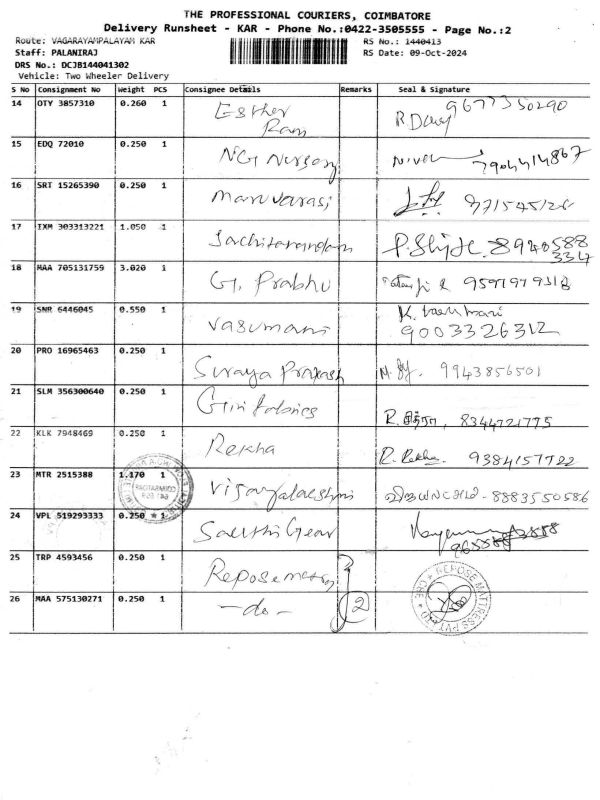 THE PROFESSIONAL COURIERS, COIMBATORE
Delivery Runsheet - KAR - Phone No.:0422-3505555 - Page No.:2
Route: VAGARAYAMPALAYAM KAR RS No.: 1440413
Staff: PALANIRAJ RS Date: 09-Oct-2024
DRS No.: DCJB144041302
Vehicle: Two Wheeler Delivery
S No Consignment No Weight PCS Consignee Details Remarks Seal & Signature
14 OTY 3857310 0.260 1 Esther Ram 9677350290
15 EDQ 72010 0.250 1 NG Nursery 7904414867
16 SRT 15265390 0.250 1 Manuvarasi
17 IXM 303313221 1.050 1 Sachitanandam 8940588334
18 MAA 705131759 3.020 1 G. Prabhu
19 SNR 6446045 0.550 1 Vasumani 9003326312
20 PRO 16965463 0.250 1 Suraya Prakash 9943856501
21 SLM 356300640 0.250 1 Giri fabrics 8344721775
22 KLK 7948469 0.250 1 Rekha R. Rekha. 9384157722
23 MTR 2515388 1.170 1 Vijayalakshmi விஜயலட்சுமி - 8883550586
24 VPL 519293333 0.250 1 Sakthi Gear
25 TRP 4593456 0.250 1 Repose mattress
26 MAA 575130271 0.250 1 - do - 2
REPOSE MATTRESS PVT LTD